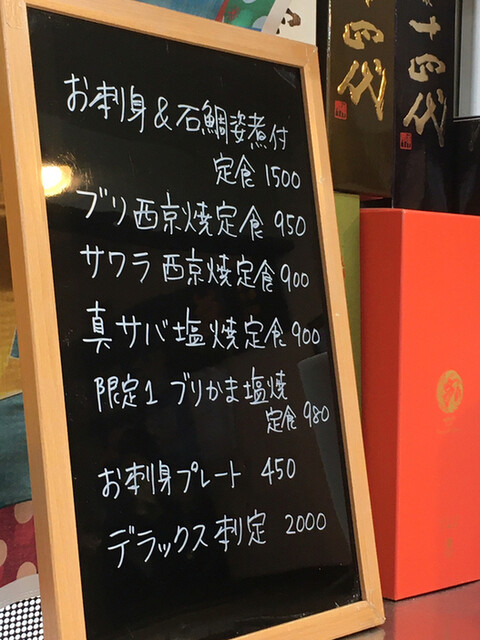 お刺身&石鯛姿煮付
定食 1500
ブリ西京焼定食 950
サワラ西京焼定食 900
真サバ塩焼定食 900
限定1 ブリかま塩焼
定食 980
お刺身プレート 450
デラックス刺定 2000
十四代